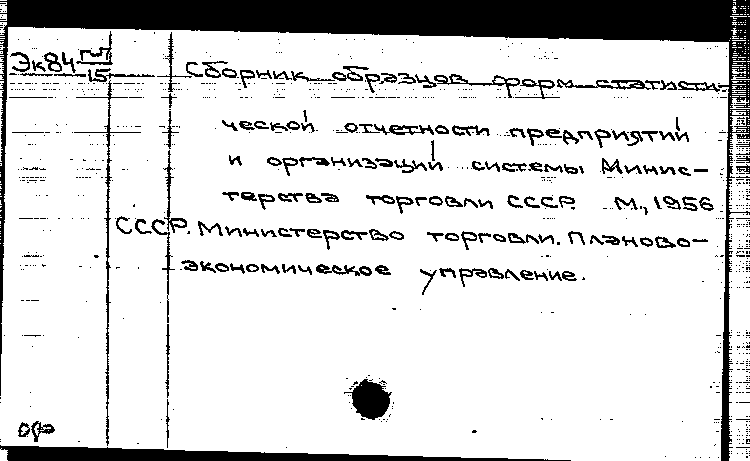 Эк84 П-7
15
Сборник образцов форм статисти-
ческой отчетности предприятий
и организаций системы Минис-
терства торговли СССР. М., 1956
СССР. Министерство торговли. Планово-
экономическое управление.